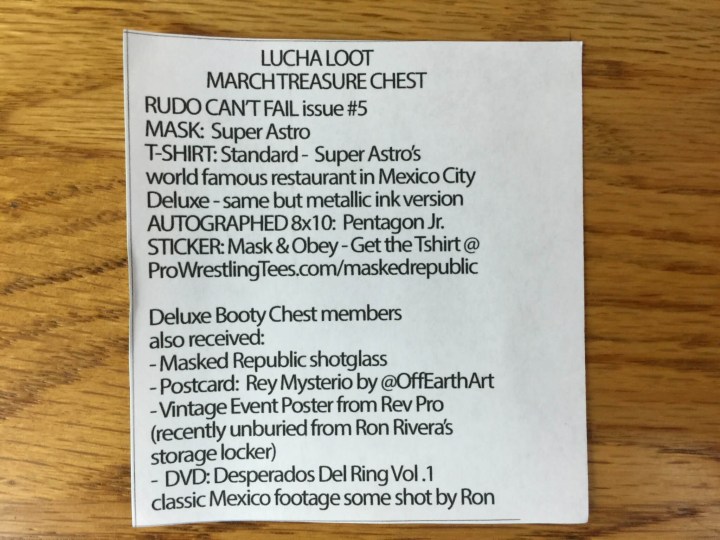 LUCHA LOOT
MARCH TREASURE CHEST
RUDO CAN'T FAIL issue #5
MASK: Super Astro
T-SHIRT: Standard - Super Astro's
world famous restaurant in Mexico City
Deluxe - same but metallic ink version
AUTOGRAPHED 8x10: Pentagon Jr.
STICKER: Mask & Obey - Get the Tshirt @
ProWrestlingTees.com/maskedrepublic
Deluxe Booty Chest members
also received:
- Masked Republic shotglass
- Postcard: Rey Mysterio by @OffEarthArt
- Vintage Event Poster from Rev Pro
(recently unburied from Ron Rivera's
storage locker)
- DVD: Desperados Del Ring Vol .1
classic Mexico footage some shot by Ron